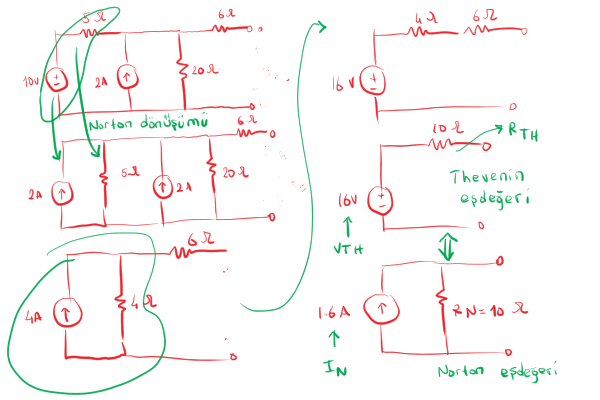 5Ω
6Ω
10V
2A
20Ω
Norton dönüşümü
6Ω
2A
5Ω
2A
20Ω
6Ω
4A
4Ω
4Ω
6Ω
16V
10Ω
RTH
16V
Thevenin
eşdeğeri
VTH
1.6A
RN=10Ω
IN
Norton eşdeğeri